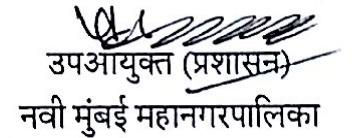 उपआयुक्त (प्रशासन)
नवी मुंबई महानगरपालिका